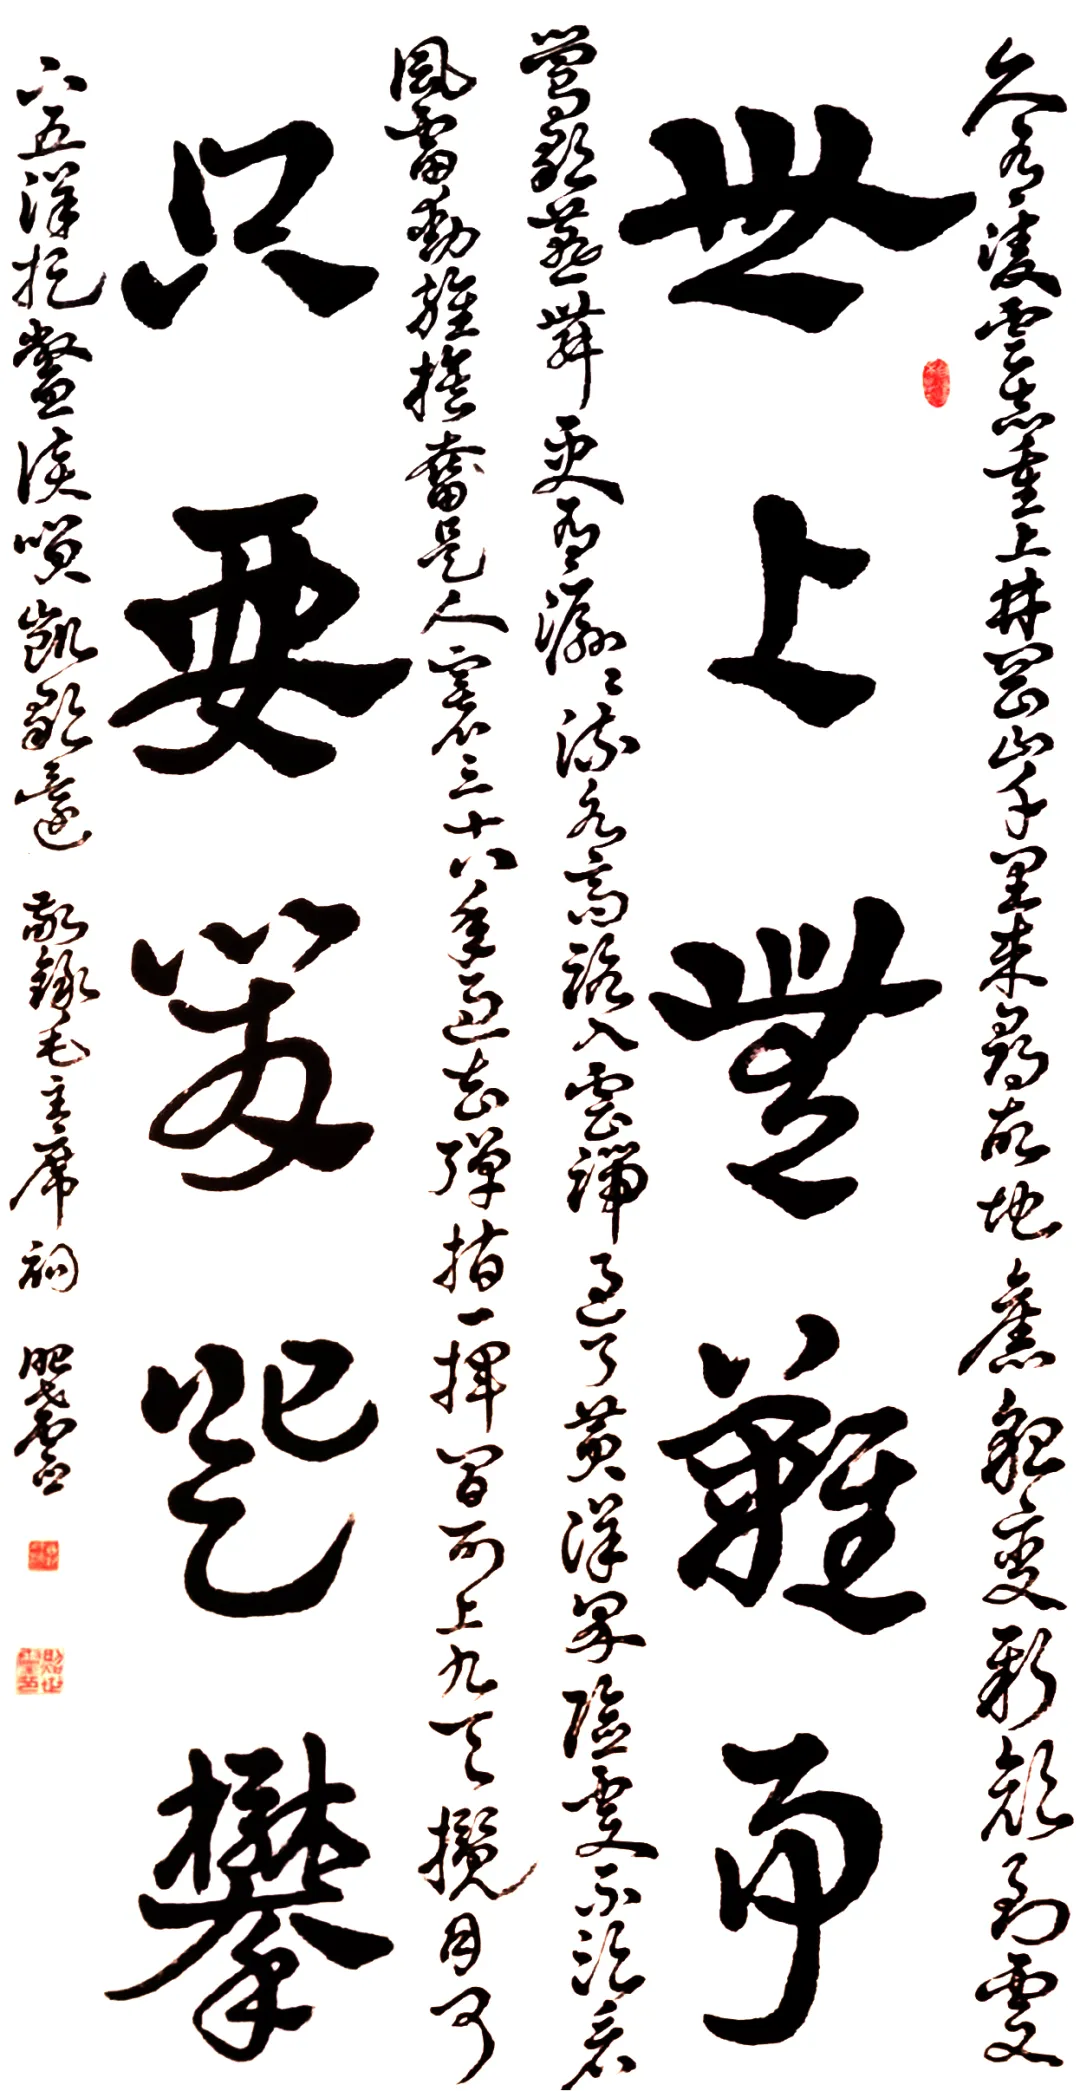 久有凌雲志重上井岡山千里来尋故地舊貌變新顔到處
世上無難事
鶯歌燕舞更有潺〻流水高路入雲端過了黄洋界險處不須看
風雷動旌旗奮是人寰三十八年過去彈指一揮間可上九天攬月可
只要肯登攀
下五洋捉鱉談笑凱歌還 敬録毛主席詞